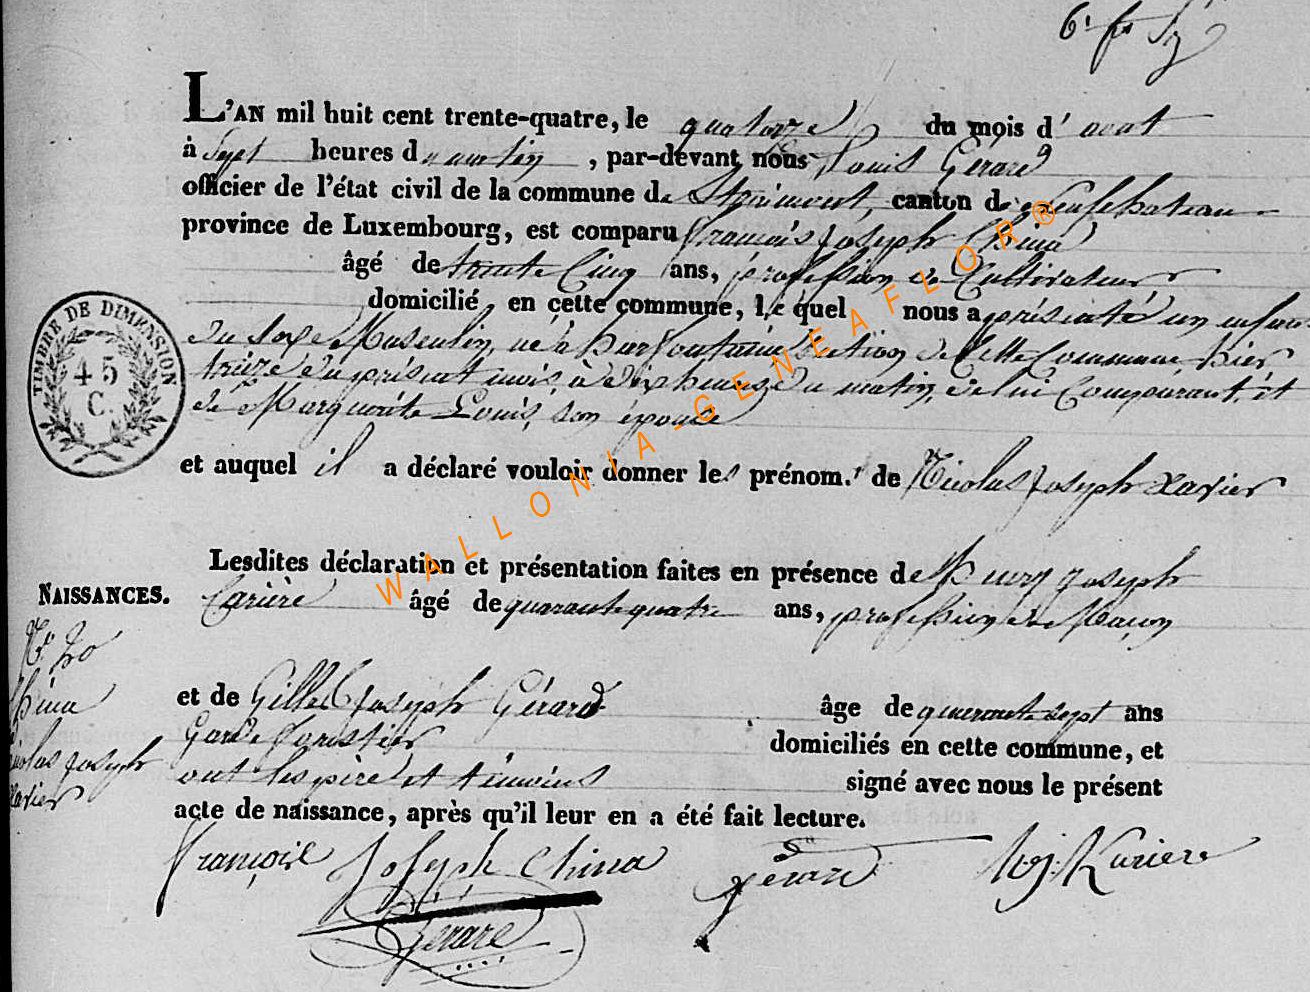 L'AN mil huit cent trente-quatre, le quatorze du mois d' août
à Sept heures du matin, par-devant nous Louis Gérard
officier de l'état civil de la commune de Straimont, canton de neufchateau
province de Luxembourg, est comparu françois Joseph China
âgé de trente Cinq ans, profession de Cultivateur
domicilié en cette commune, lequel nous a présenté un enfant
du Sexe Masculin, né à harfontaine Section de Cette Commune, hier
treize du présent mois à dix heures du matin, de lui Comparant, et
de Marguerite Louis, son épouse
et auquel il a déclaré vouloir donner les prénom.s de Nicolas Joseph Xavier
Lesdites déclaration et présentation faites en présence de Joseph
NAISSANCES.
Carière âgé de quarante quatre ans, profession de Maçon
China
Nicolas Joseph
Xavier
et de Gilles Joseph Gérard âge de quarante sept ans
Garde forestier domiciliés en cette commune, et
ont les père et témoins signé avec nous le présent
acte de naissance, après qu'il leur en a été fait lecture.
françois Joseph China gérard Kuriere
Gérard
TIMBRE DE DIMENSION
45
C.
WALLONIA-GENEAFLOR®